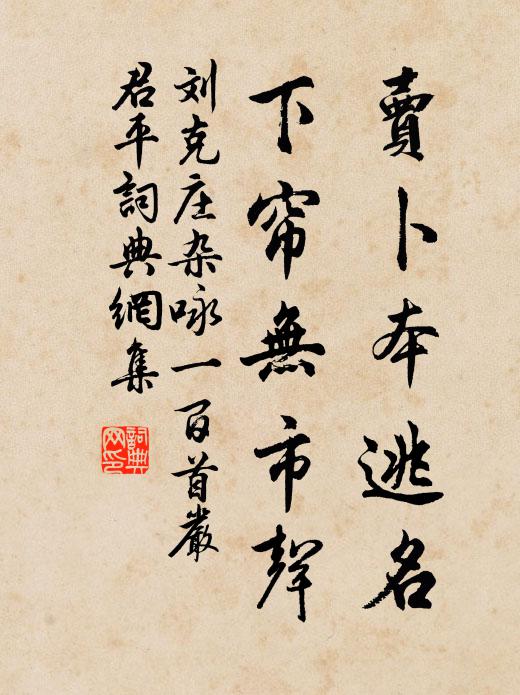 賣卜本逃名
下帘無市聲
刘克庄杂咏一百首嚴
君平詞典網集
詞典
网印